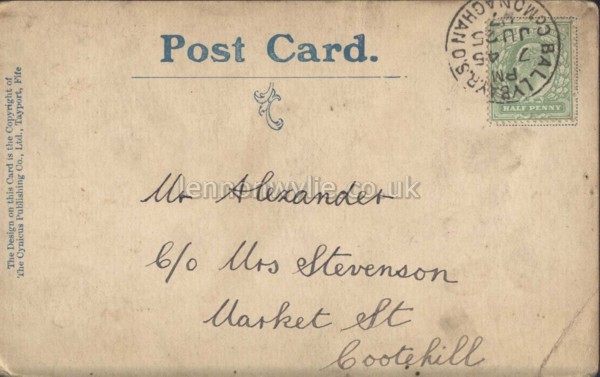 Post Card.
The Design on this Card is the Copyright of
The Cynicus Publishing Co., Ltd., Tayport, Fife
BALLYBAY.R.S.O
CO MONAGHAN
7 45 PM
JU
HALF PENNY
lennonwylie.co.uk
Mr Alexander
C/o Mrs Stevenson
Market St
Cootehill